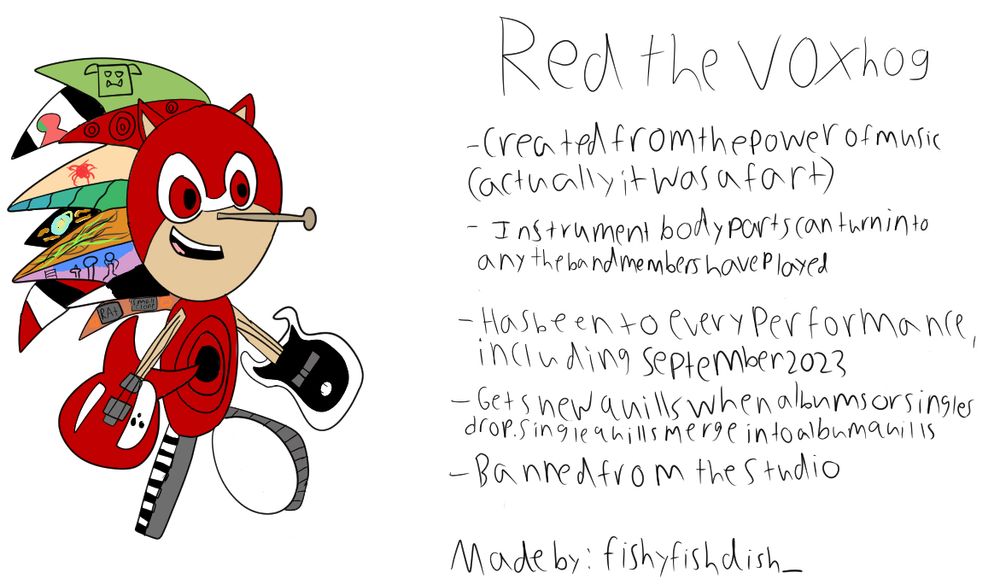 Red the voxhog
-Created from the power of music
(actually it was a fart)
- Instrument body parts can turn into
any the band members have played
- Has been to every performance,
including september 2023
- Gets new quills when albums or singles
drop. single quills merge into album quills
- Banned from the studio
Made by: fishyfishdish_
RAt
small
clone